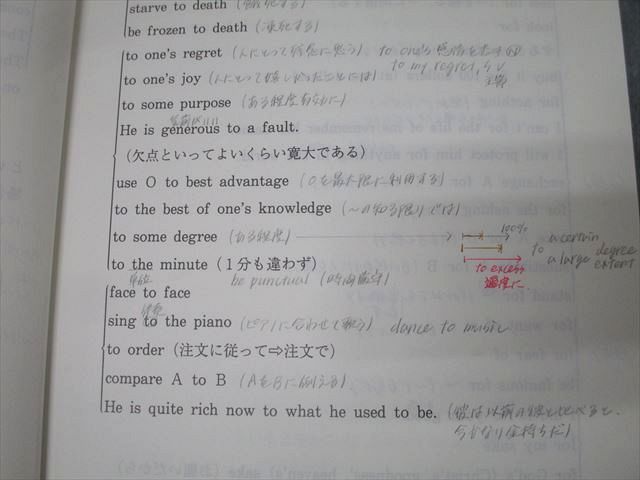 starve to death (餓死する)
be frozen to death (凍死する)
to one's regret (人にとって残念に思う) to one's 感情を表す
to my regret, S V
to one's joy (人にとって嬉しかったことには)
to some purpose (ある程度有効に)
He is generous to a fault.
(欠点といってよいくらい寛大である)
use O to best advantage (Oを最大限に利用する)
to the best of one's knowledge (〜の知る限りでは)
to some degree (ある程度) 100%
to a certain degree
a large extent
to excess
過度に
to the minute (1分も違わず)
be punctual (時間厳守)
face to face
sing to the piano (ピアノに合わせて歌う) dance to music
to order (注文に従って⇒注文で)
compare A to B (AをBに例える)
He is quite rich now to what he used to be. (彼は以前の彼と比べると、
今かなり金持ちだ)